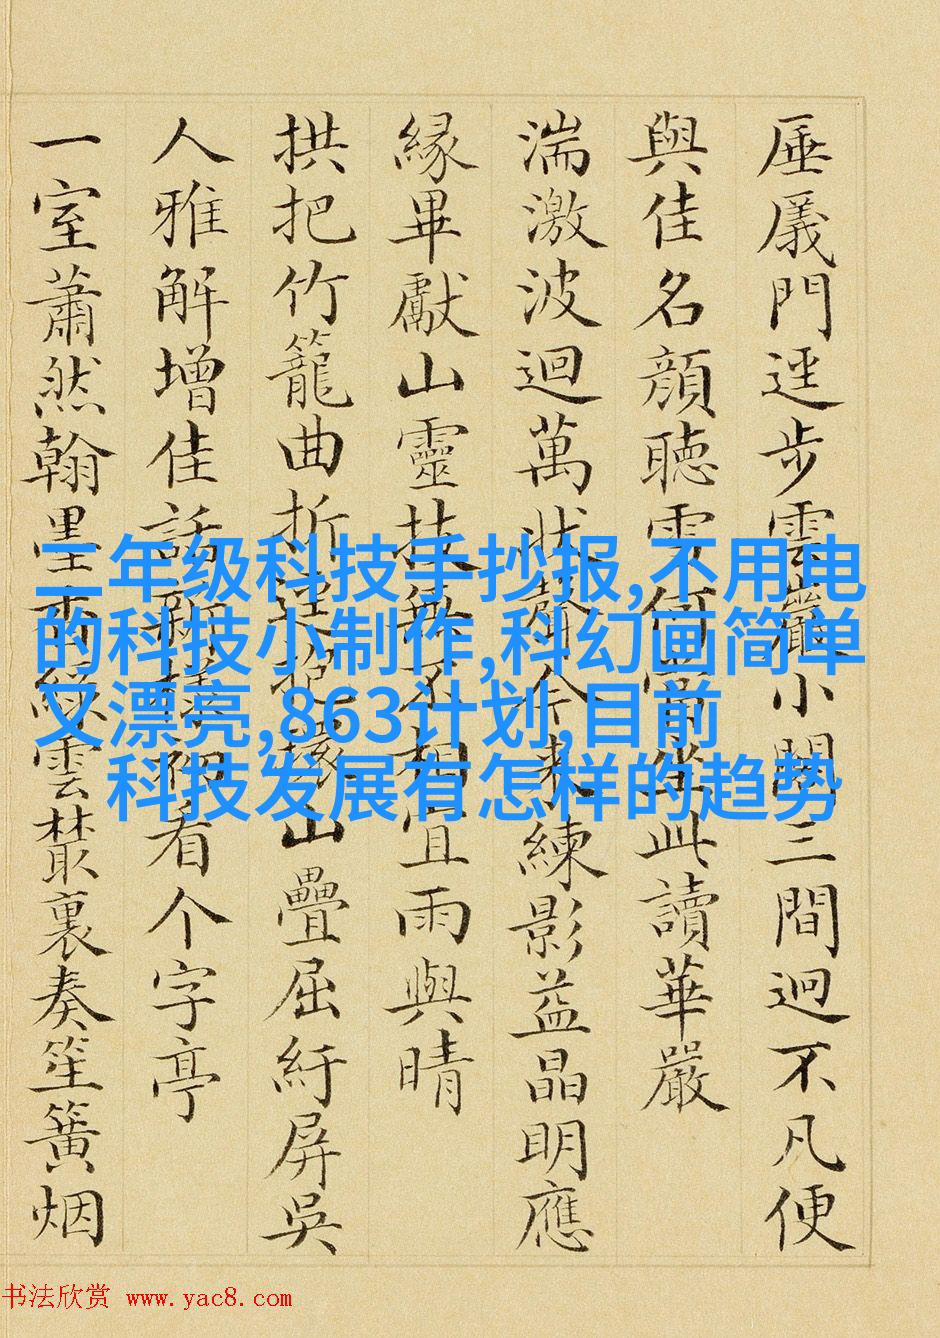 垂㕒門逕步雲巖小閣三間迥不凡便
與佳名顔聽雪何當坐此讀華嚴
湍激波迴萬狀聲今來練影益晶明應
緣畢獻山靈技無不相宜雨與晴
拱把竹籠曲折 山疊屈紆屏吳
人雅解增佳話新樣 看个字亭
一室蕭然翰墨香綠雲叢裏奏笙簧烟
二年级科技手抄报,不用电
的科技小制作,科幻画简单
又漂亮,863计划,目前
科技发展有怎样的趋势
书法欣赏 www.yac8.com